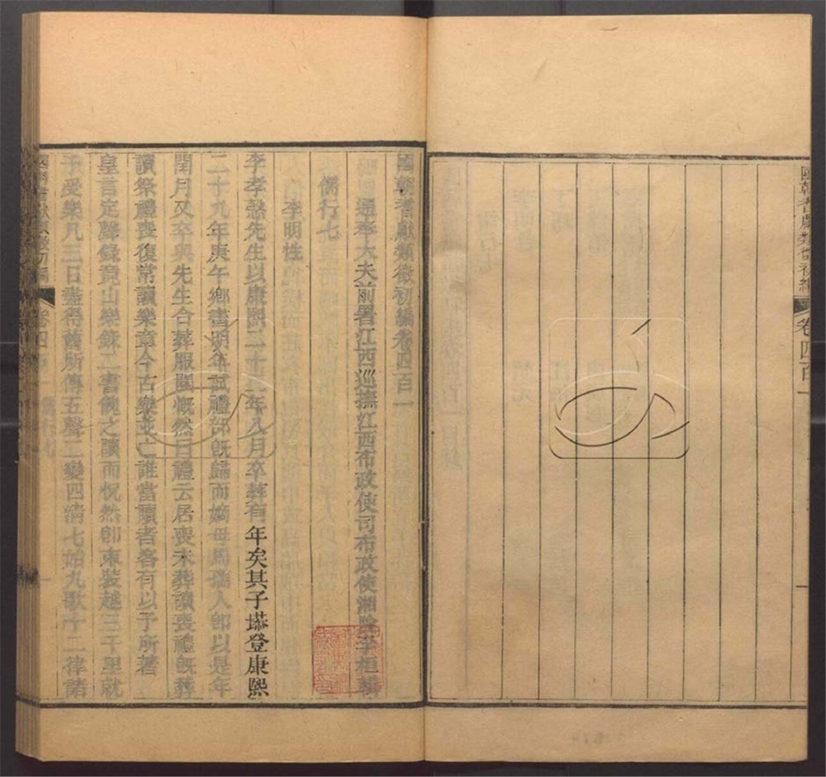 國朝耆獻類徵初編
卷四百一
國朝耆獻類徵初編卷四百一
通奉大夫前署江西巡撫江西布政使司布政使湘陰李桓輯
儒行七
李明性
李孝慤先生以康熙二十二年八月卒葬有年矣其子塨登康熙
二十九年庚午鄉書明年試禮部既歸而嫡母馬孺人卽以是年
閏月又卒與先生合葬服闋慨然曰禮云居喪未葬讀喪禮既葬
讀祭禮喪復常讀樂章今古樂並亡誰當讀者客有以予所著
皇言定聲錄竟山樂錄二書餽之讀而怳然卽束裝越三千里就
予受樂凡三日盡得舊所傳五聲二變四清七始九歌十二律諸
國朝耆獻類徵初編
卷四百一 儒行七